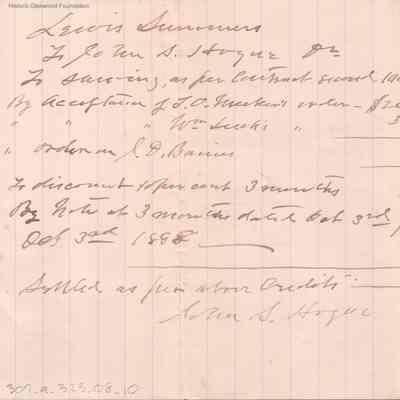 Historic Glenwood Foundation
Lewis Summers
To John S. Hogue Dr
To Sawing, as per Contract second
By Acceptance of T. O. Meeker's order - $20
" " " Wm " 3
" order on J. D. Baines
To discount per cent 3 months
By Note at 3 months dated Oct 3rd
Oct 3rd 1898
Settled as per above Credits.
John S. Hogue
307.a.323.08.10